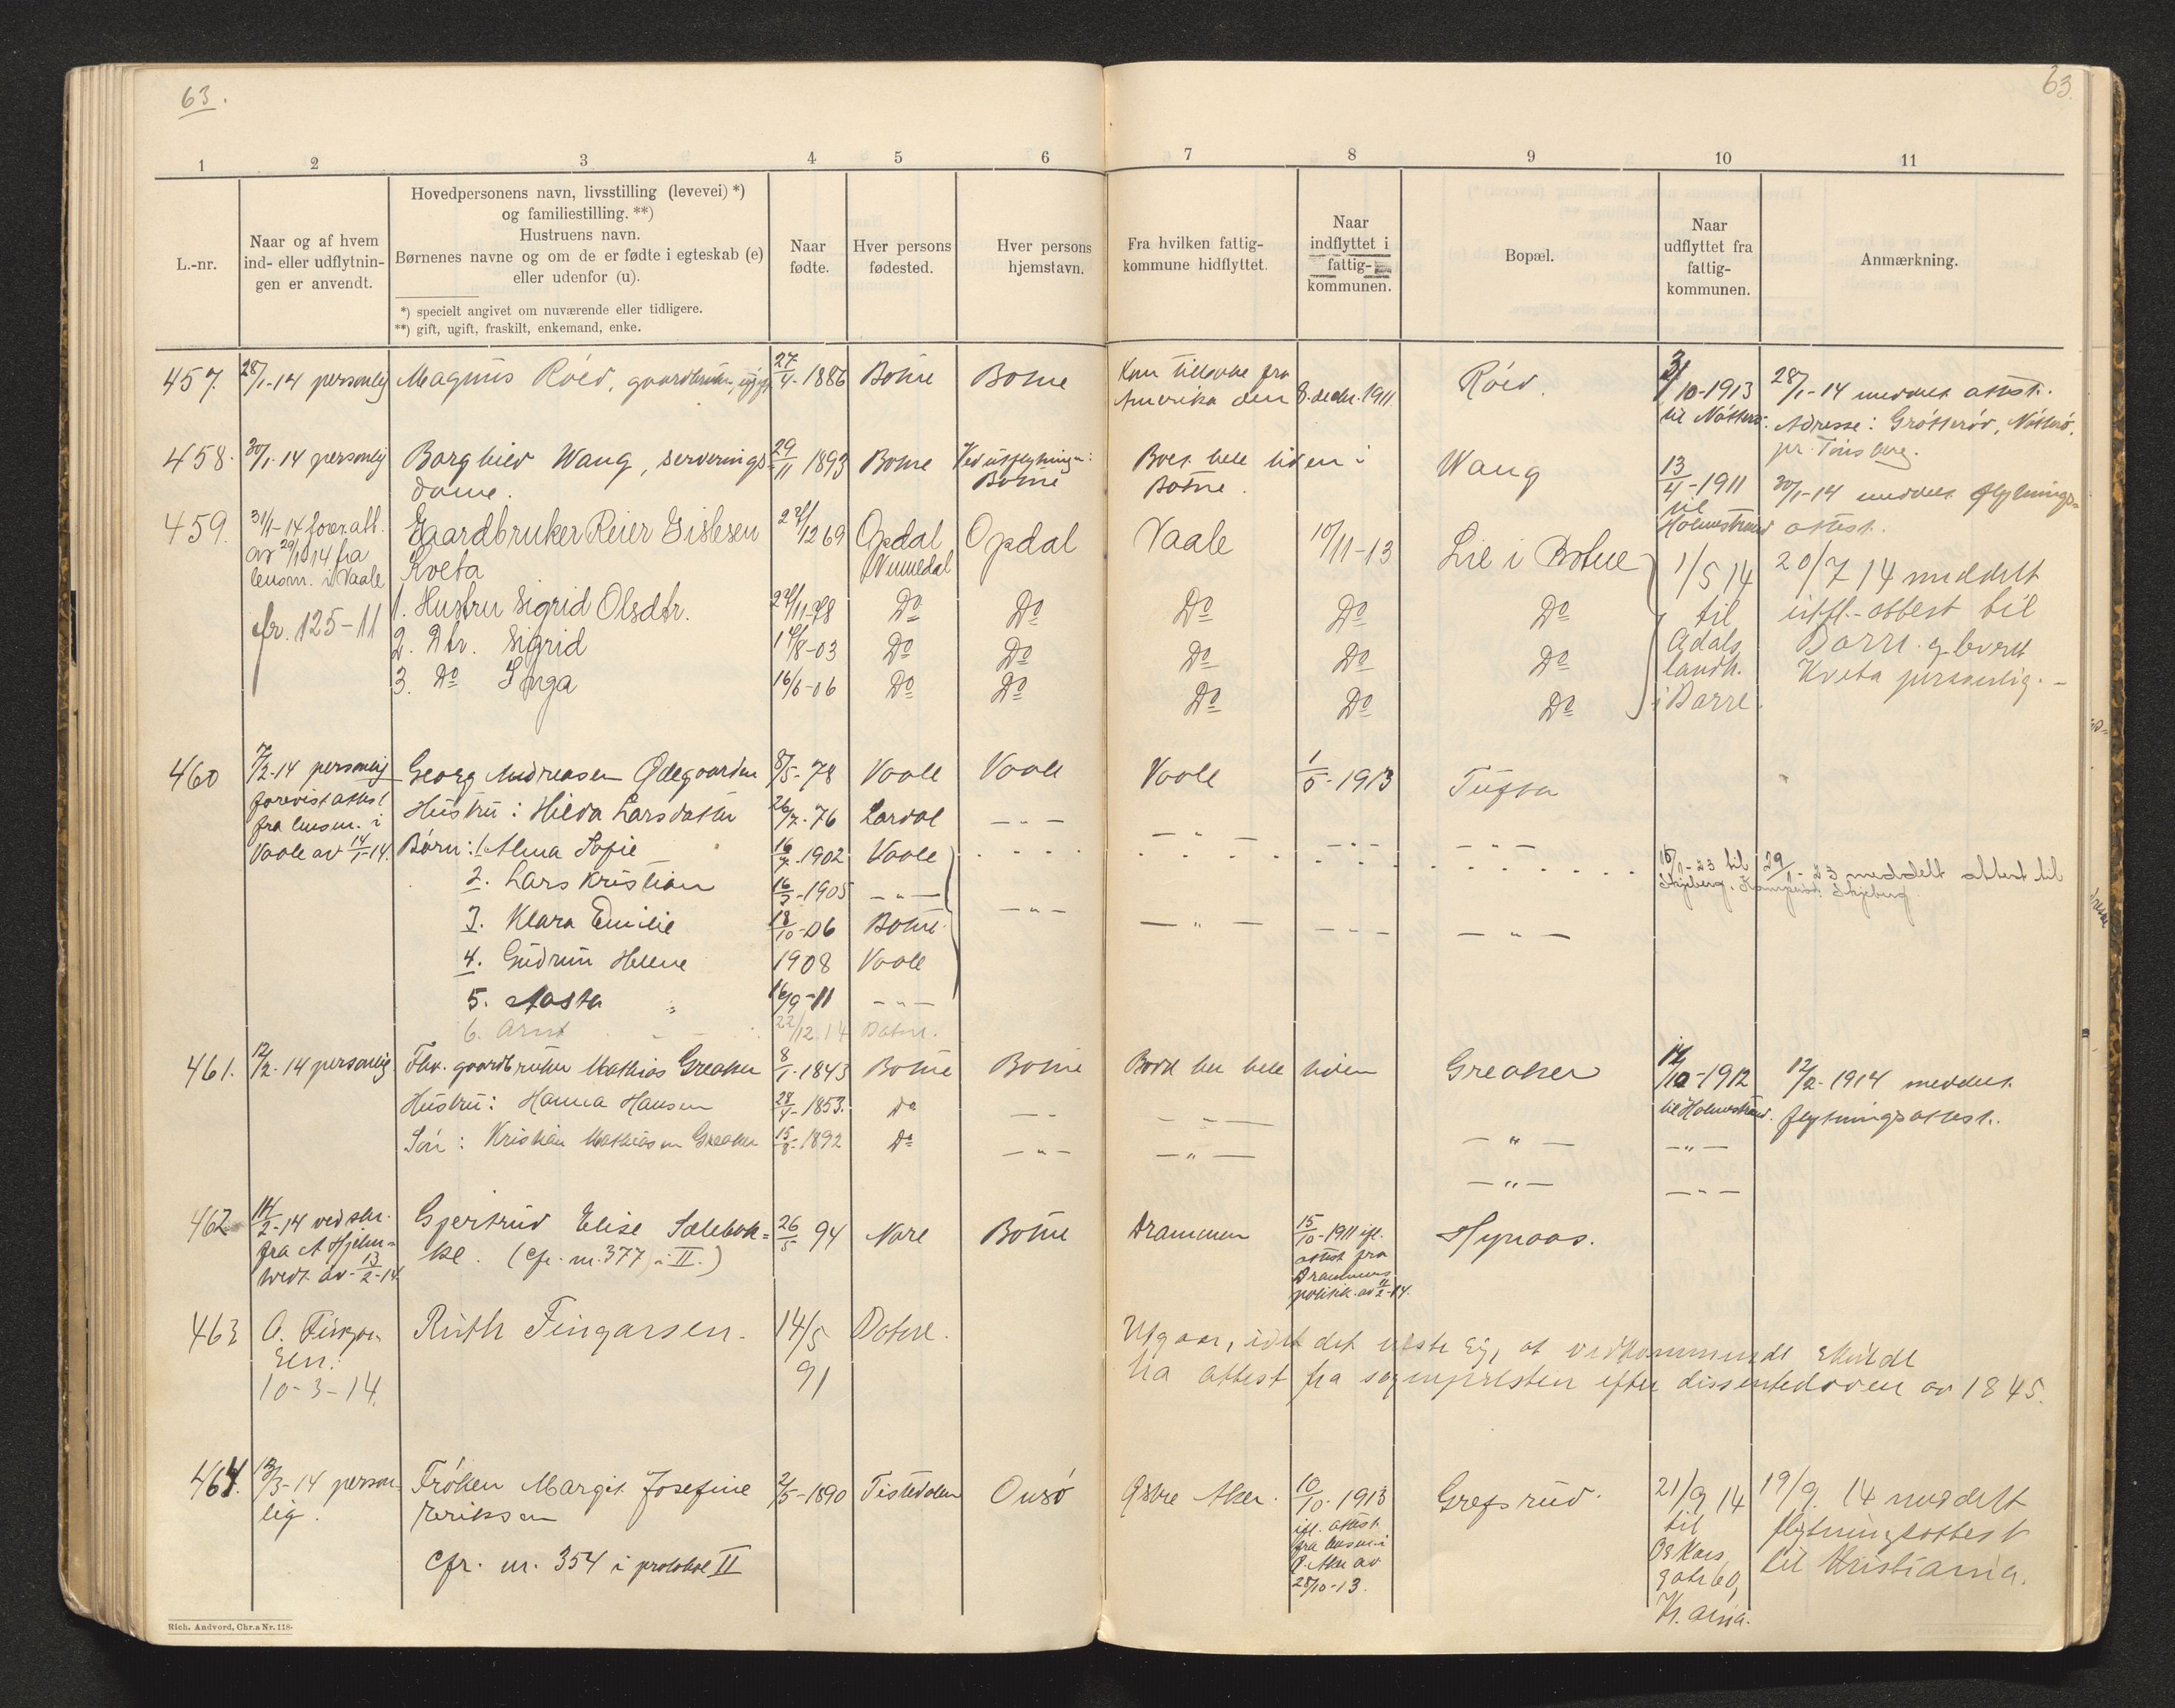 63.
63.
1 2 3 4 5 6 7 8 9 10 11
L.-nr.
Naar og af hvem
ind- eller udflytnin-
gen er anvendt.
Hovedpersonens navn, livsstilling (levevei) *)
og familiestilling. **)
Hustruens navn.
Børnenes navne og om de er fødte i egteskab (e)
eller udenfor (u).
*) specielt angivet om nuværende eller tidligere.
**) gift, ugift, fraskilt, enkemand, enke.
Naar
fødte.
Hver persons
fødested.
Hver persons
hjemstavn.
Fra hvilken fattig-
kommune hidflyttet.
Naar
indflyttet i
fattig-
kommunen.
Bopæl.
Naar
udflyttet fra
fattig-
kommunen.
Anmærkning.
457. 28/1-14 personlig Magnus Röed, gaardbruker, 27/4-1886 Botne Botne
Kom tilbake fra
Amerika den 8. decbr. 1911.
Röed.
3/10-1913
til Nötterö.
28/1-14 meddelt attest.
Adresse: Grötteröd, Nötterö,
pr. Tönsberg.
458. 30/1-14 personlig Borghild Wang, serverings-
dame.
29/11 1893 Botne
Ved utflytningen:
Botne
Boet hele tiden i
Botne.
Wang
13/4-1911
til
Holmestrand
30/1-14 meddelt flytnings-
attest.
459. 31/1-14 forev. att.
av 29/1 14 fra
lensm. i Vaale
cfr. 125-11
Gaardbruker Reier Gislesen
Kveta
22/12 69 Opdal
Numedal
Opdal Vaale 10/11-13 Lie i Botne
1/5 14
til
Adals
landh.
i Borre.
20/7 14 meddelt
utfl.-attest til
Borre.
Kveta personlig.-
1. Hustru Sigrid Olsdtr. 22/11-78 Do Do Do Do Do
2. Dtr. Sigrid 12/8-03 Do Do Do Do Do
3. Do Inga 16/6-06 Do Do Do Do Do
460 7/2-14 personlig
forevist attest
fra lensm. i
Vaale av 14/1-14.
Georg Andreasen Ødegaarden 8/5-78 Vaale Vaale Vaale 1/5-1913 Tufta
Hustru: Hilda Larsdatter 26/7-76 Lardal - " -
Børn: 1. Alma Sofie 16/7-1902 Vaale
2. Lars Kristian 16/3-1905 - " -
3. Klara Emilie 18/10-06 Botne.
4. Gudrun Helene 1908 Vaale
5. Aasta " 16/9-11 - " -
6. Arnt 22/12.14 Botne.
15/1-23 til
Skjeberg.
29/1-23 meddelt attest til
Skjeberg
461. 12/2-14 personlig. Fhv. gaardbruker Mathias Greaker 8/1-1843 Botne Botne Bodd her hele tiden Greaker
14/10-1912
til Holmestrand.
12/2-1914 meddelt
flytningsattest.
Hustru: Hanna Hansen 28/4-1853. Do - " -
Sön: Kristian Mathiasen Greaker 15/8-1892 Do - " -
462 14/2-14 ved skr.
fra A Hjelm-
tvedt av 13/2-14.
Gjertrud Elise Solebak-
ke. (Cfr. nr. 377 i II.)
26/5 94 Nore Botne Drammen
15/10-1911 ifl.
attest fra
Drammens
politik. av 11/2-14.
Hynaas.
463
10-3-14.
Ruth Fingarsen. 14/5
91
Botne.
Utgaar, idet det viste sig, at vedkommende skulde
ha attest fra sogneprästen efter dissenterloven av 1845.
464. 12/3-14 person-
lig.
Fröken Margit Josefine
Eriksen
Cfr. nr. 354 i protokol II
2/5-1890 Tistedalen Onsö Østre Aker.
10/10-1913
ifl. attest
fra lensm. i
Ø. Aker av
28/10-13.
Grefsrud.
21/9 14
til
Oskars
gate 60,
Kr.ania.
19/9. 14 meddelt
flytningsattest
til Kristiania.
Rich. Andvord, Chr.a Nr. 118.